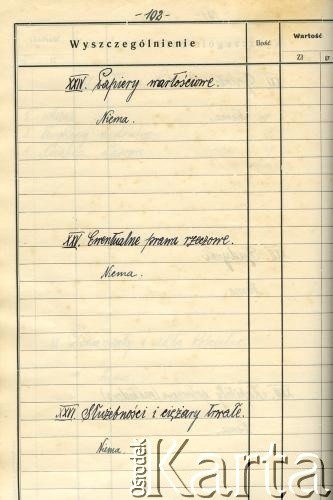 -102-
Wyszczególnienie
Ilość
Wartość
Zł
gr
XXIV. Papiery wartościowe.
Niema.
XXV. Ewentualne prawa rzeczowe.
Niema.
XXVI. Służebności i ciężary trwałe.
Niema.
Ośrodek
Karta